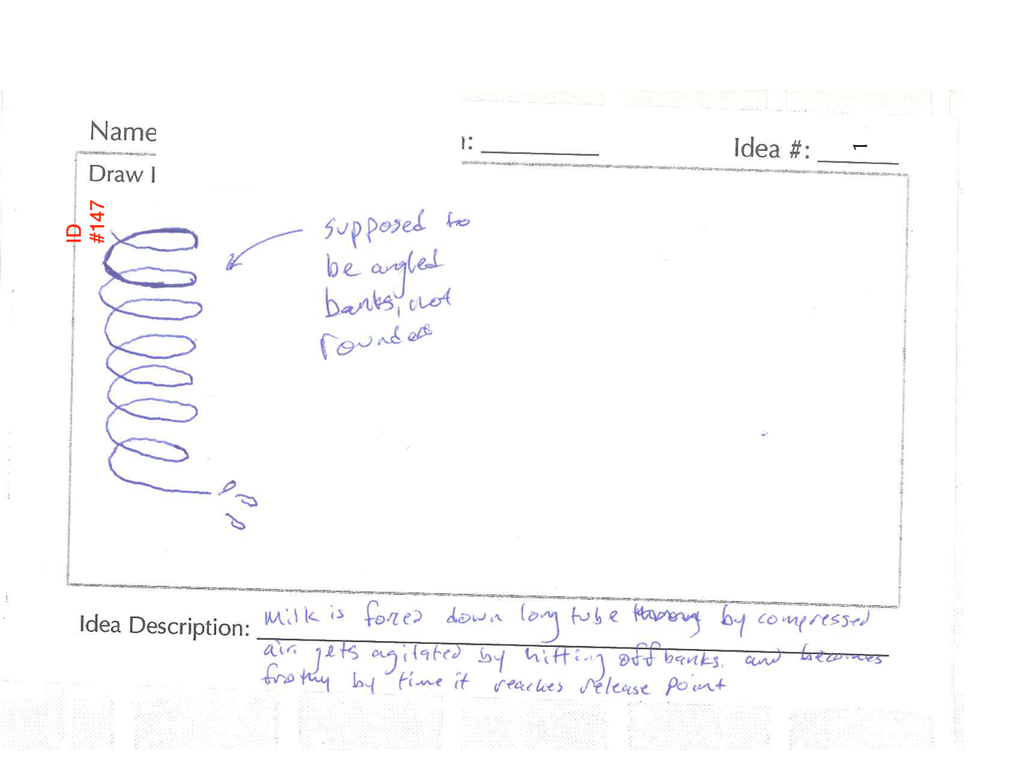 Name
1: Idea #: 1
Draw I
ID
#147
supposed to
be angled
banks, not
rounded
Idea Description: Milk is forced down long tube by compressed
air. gets agitated by hitting off banks. and becomes
frothy by time it reaches release point